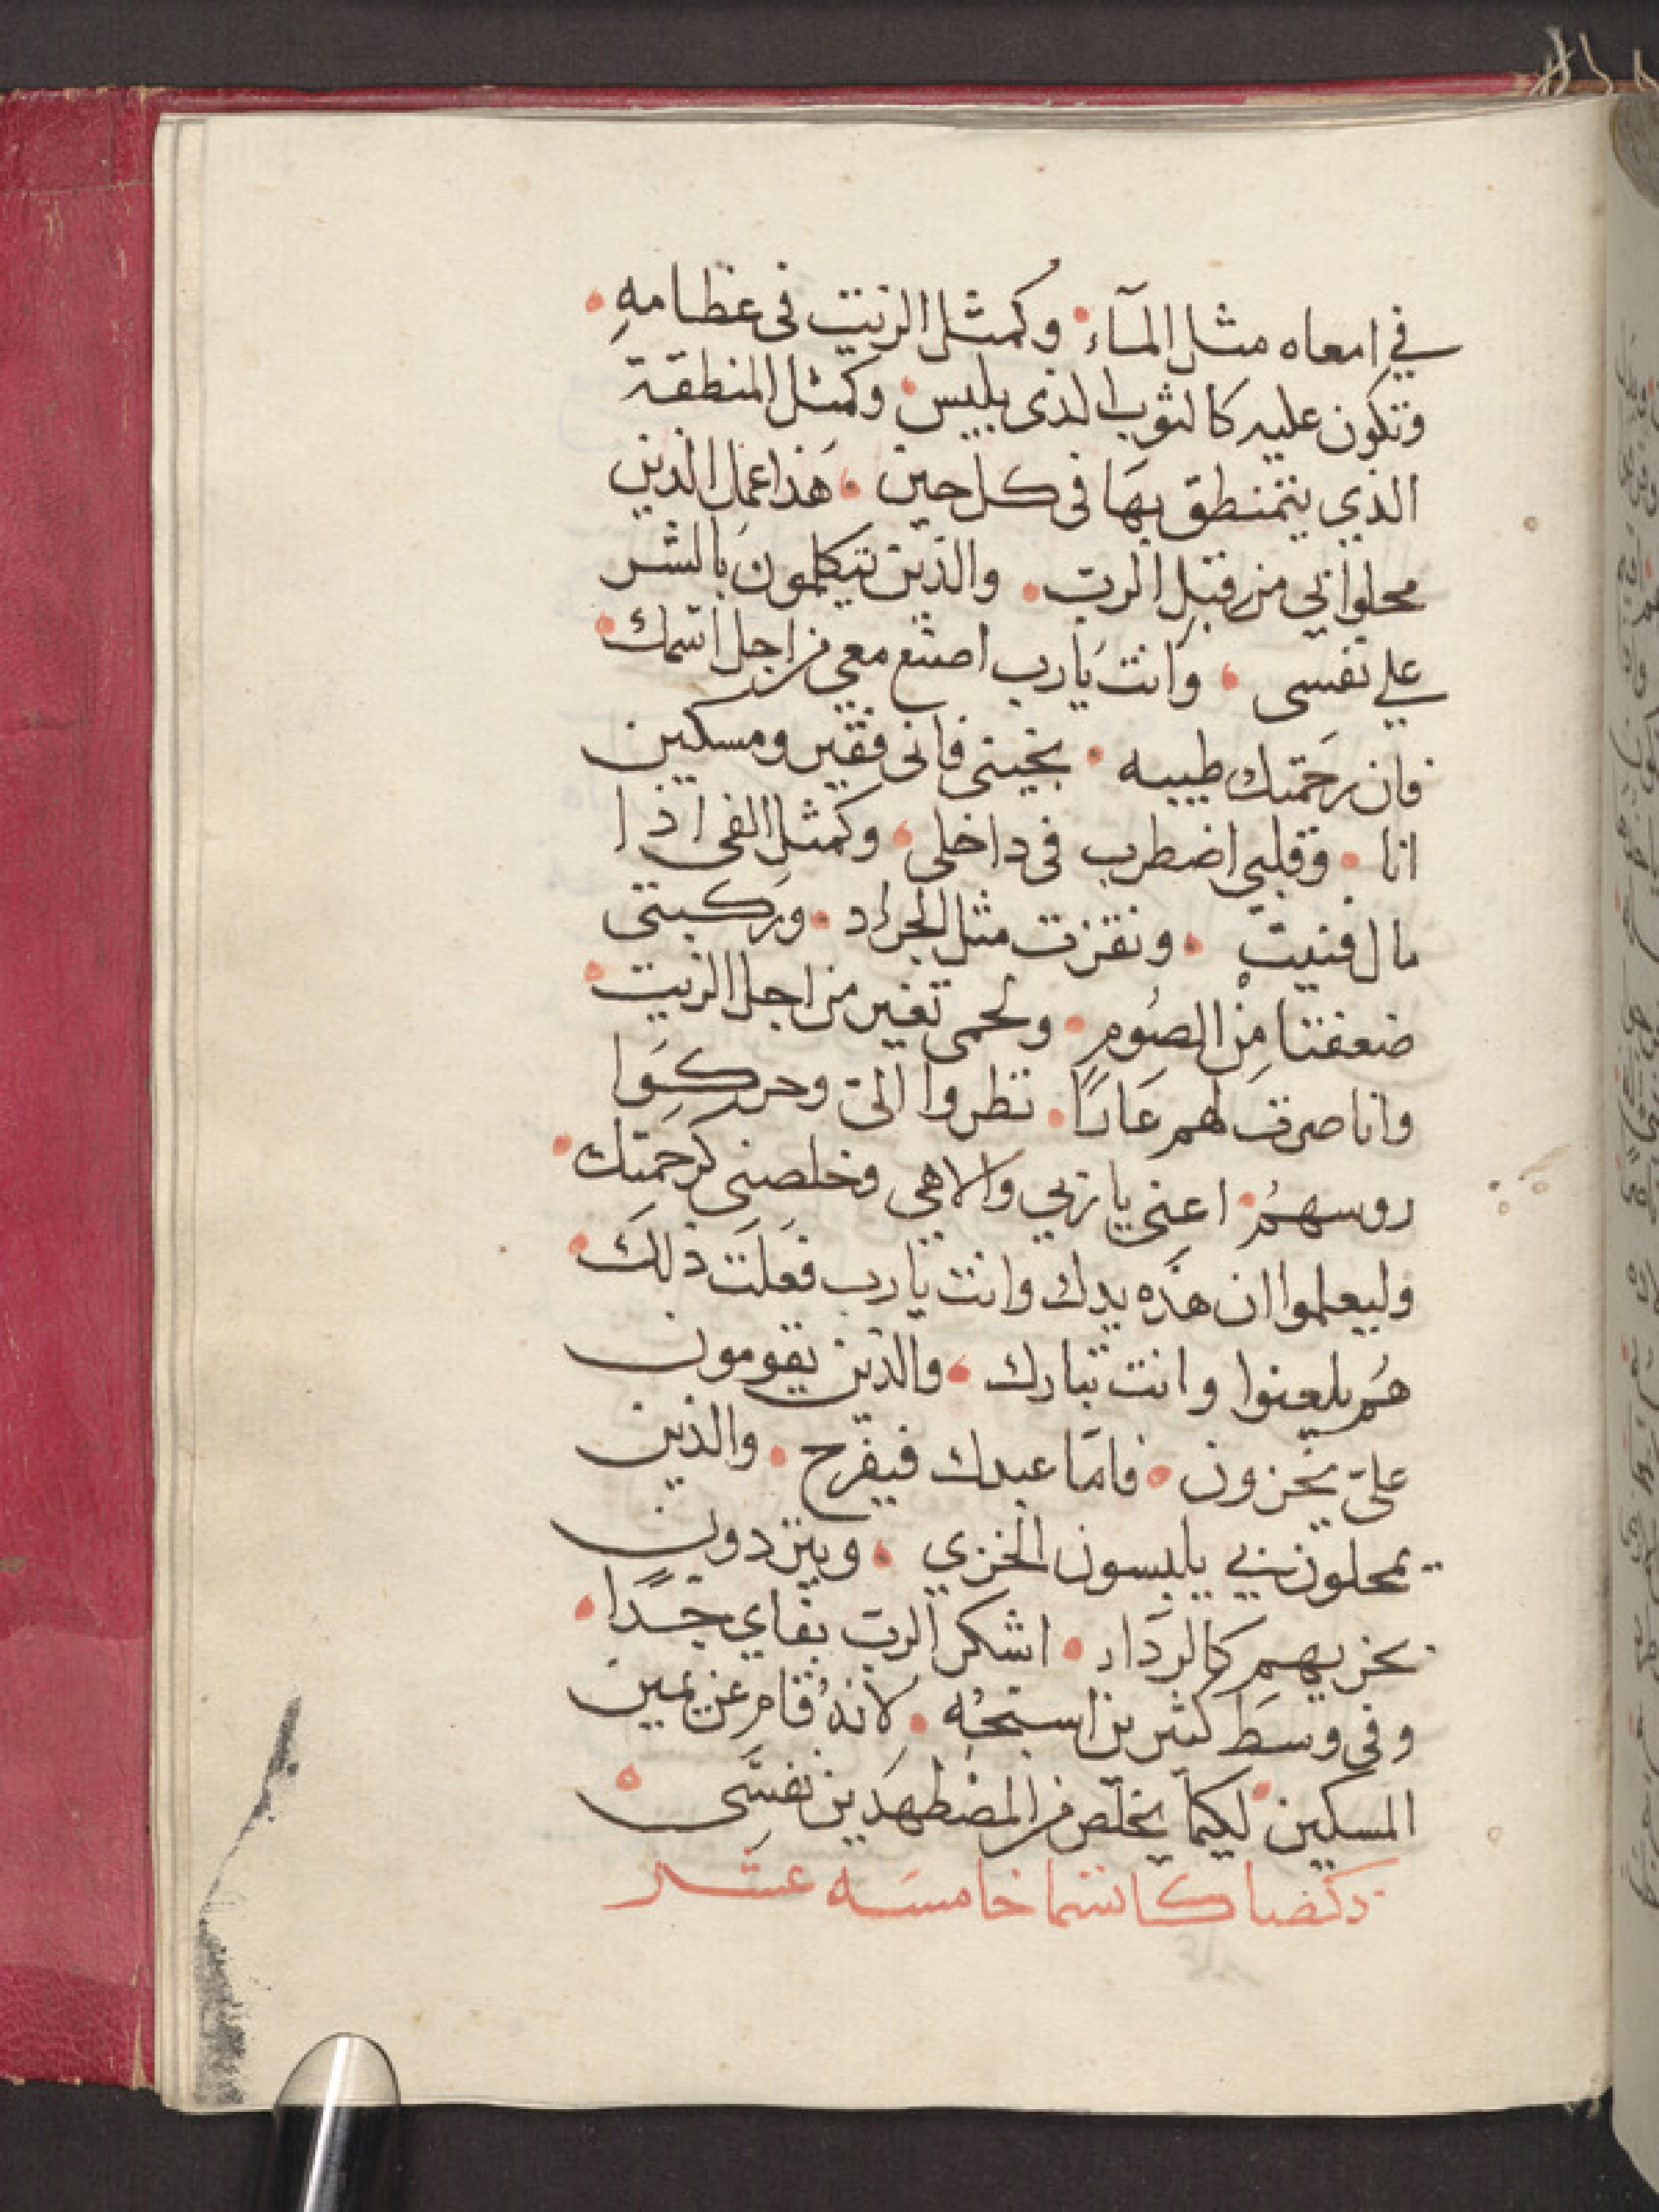 في امعاه مثل المآء • وكمثل الزيت فى عظامهِ •
وتكون عليه كالثوب الذى يلبس • وكمثل المنطقة
الذي يتمنطق بهَا فى كل حين • هَذا عمَل الذين
محلوا بي من قبَلِ الربّ • والذين يتكلمون بالشر
علي نفسى • وَانت يَارب اصنع معي من اجل اسمك •
فان رحمتك طيبه • نجينى فانى فقير ومسكين
انا • وقلبي اضطرب فى داخلى • وكمثل الفى اذا
مال فنيت • ونفزت مثل الجراد • وركبتى
ضعفتا مِنْ الصُوم • ولحمى تغير من اجل الزيت •
وانا صرت لهم عَارًا • نظروا الىّ وحركوا
روسهمُ • اعِنى يا ربي والاهي وخلصنى كرحمتك •
وليعلموا ان هذه يدك وانت يا رب فعَلت ذلِكَ •
هُم يلعنوا وانت تبارك • والذين يقومون
علىّ يخزون • فامَا عبدك فيفرح • والذين
يمحلون بي يلبسون الخزي • ويتردون
بخزيهم كالردَاء • اشكر الربّ بفاي جدًا •
وفى وسَط كثيرين اسبحُه • لانهُ قام عن يمين
المسكين • لكيما يخلص من المضطهدَين نفسَى •
دكضا كاتسما خامسَه عشر